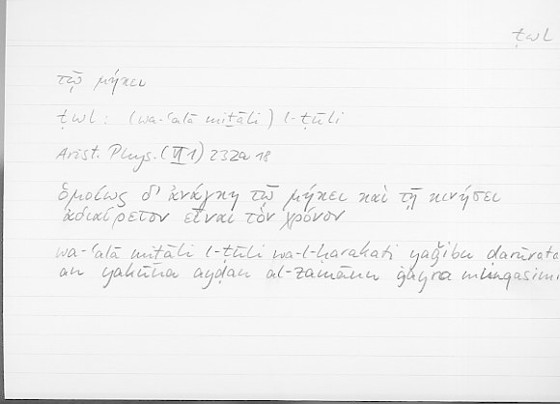 ṭwl
τῷ μήκει
ṭwl: (wa-ʿalā miṯāli) l-ṭūli
Arist. Phys. (VI 1) 232a 18
ὁμοίως δ' ἀνάγκη τῷ μήκει καὶ τῇ κινήσει
ἀδιαίρετον εἶναι τὸν χρόνον
wa-ʿalā miṯāli l-ṭūli wa-l-ḥarakati yaǧibu ḍarūrata
an yakūna ayḍan al-zamānu ġayra munqasimi